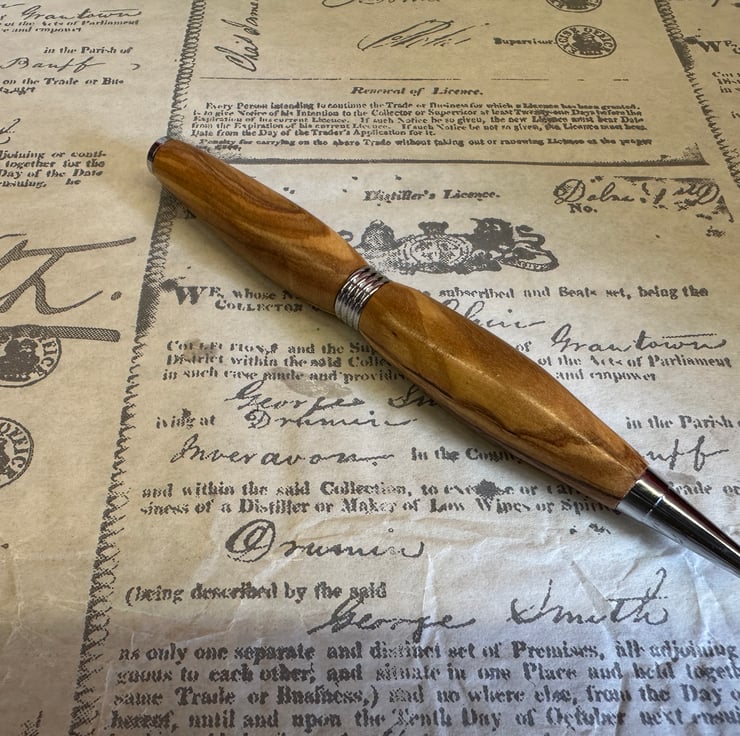 Grantown
the Acts of Parliament
and empower
in the Parish of
Banff
on the Trade or Bus-
Supervisor.
EXCISE OFFICE
Renewal of Licence.
Every Person intending to continue the Trade or Business for which a Licence has been granted,
is to give Notice of his Intention to the Collector or Supervisor at least Twenty-one Days before the
Expiration of his current Licence. If such Notice be so given, the new Licence must bear Date
from the Expiration of his current Licence. If such Notice be not so given, the Licence must bear
Date from the Day of the Trader's Application for it.
Penalty for carrying on the above Trade without taking out or renewing Licence as the proper
adjoining or conti-
together for the
Day of the Date
ensuing, he
Distiller's Licence.
No.
WE, whose N subscribed and Seals set, being the
COLLECTOR
COLLECTION, and the Sup of Grantown
District within the said Colle of the Acts of Parliament
in such case made and provid and empower
George Sm
iving at Drumin in the Parish
Inveravon in the Coun anff
and within the said Collection, to exercise or Trade or
siness of a Distiller or Maker of Low Wines or Spirit
Drumin
(being described by the said
George Smith
as only one separate and distinct set of Premises, all adjoining
guous to each other, and situate in one Place and held togeth
same Trade or Business,) and no where else, from the Day o
hereof, until and upon the Tenth Day of October next ensuin